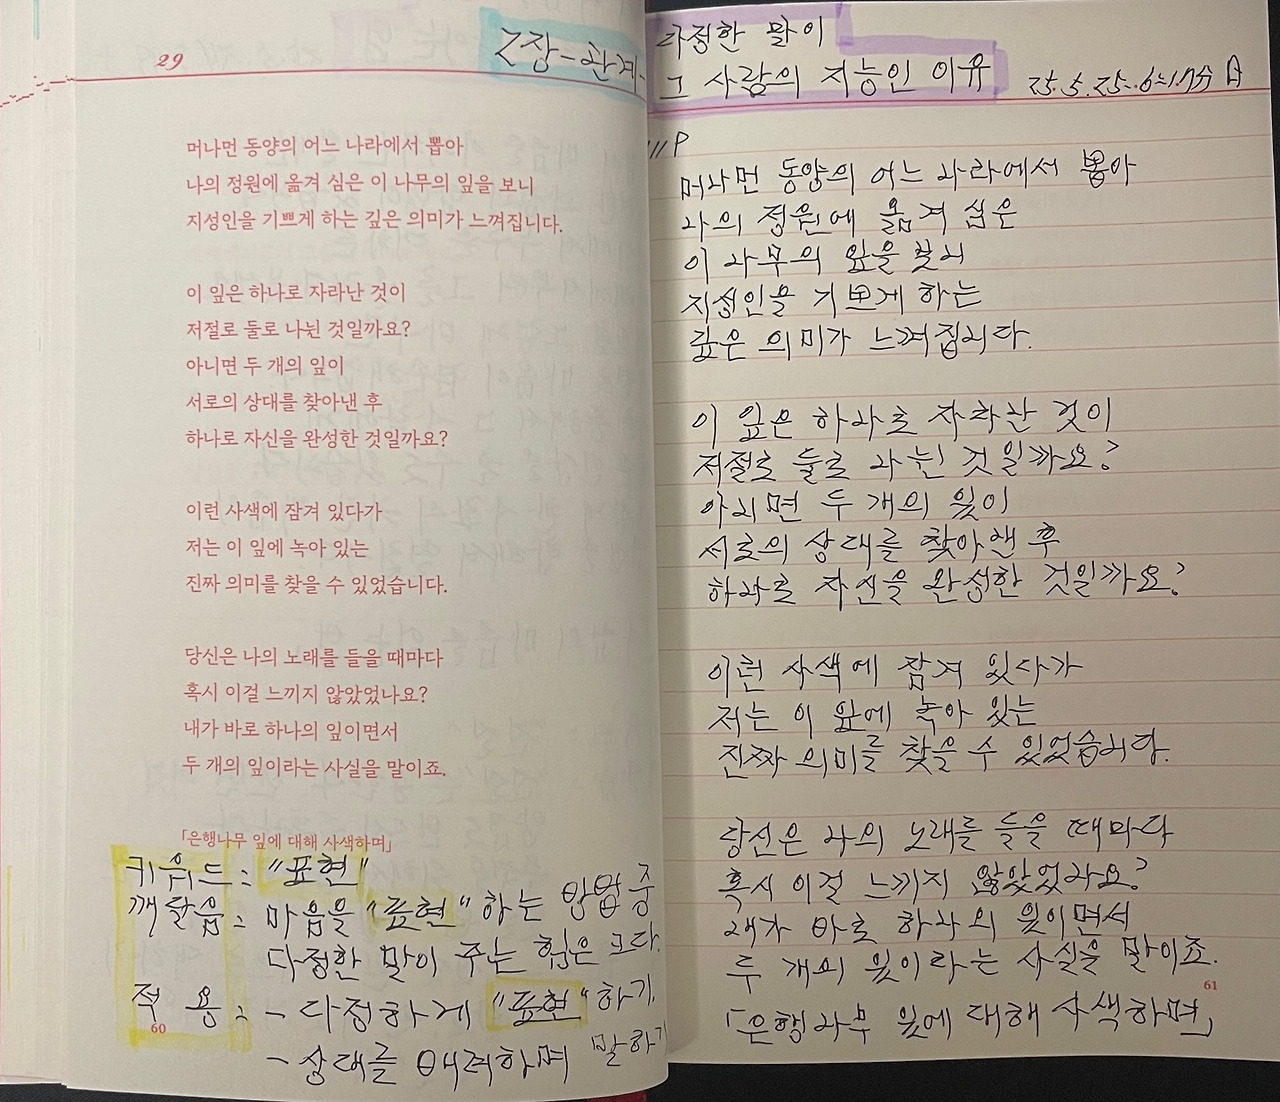 29
2장-관계-
머나먼 동양의 어느 나라에서 뽑아
나의 정원에 옮겨 심은 이 나무의 잎을 보니
지성인을 기쁘게 하는 깊은 의미가 느껴집니다.
이 잎은 하나로 자라난 것이
저절로 둘로 나뉜 것일까요?
아니면 두 개의 잎이
서로의 상대를 찾아낸 후
하나로 자신을 완성한 것일까요?
이런 사색에 잠겨 있다가
저는 이 잎에 녹아 있는
진짜 의미를 찾을 수 있었습니다.
당신은 나의 노래를 들을 때마다
혹시 이걸 느끼지 않았었나요?
내가 바로 하나의 잎이면서
두 개의 잎이라는 사실을 말이죠.
「은행나무 잎에 대해 사색하며」
키워드 : "표현"
깨달음 : 마음을 "표현"하는 방법 중
다정한 말이 주는 힘은 크다.
적용 : - 다정하게 "표현"하기.
- 상대를 배려하며 말하기
60
다정한 말이
그 사람의 지능인 이유
25.5.25. 6:17分 日
111P
머나먼 동양의 어느 나라에서 뽑아
나의 정원에 옮겨 심은
이 나무의 잎을 보니
지성인을 기쁘게 하는
깊은 의미가 느껴집니다.
이 잎은 하나로 자라난 것이
저절로 둘로 나뉜 것일까요?
아니면 두 개의 잎이
서로의 상대를 찾아낸 후
하나로 자신을 완성한 것일까요?
이런 사색에 잠겨 있다가
저는 이 잎에 녹아 있는
진짜 의미를 찾을 수 있었습니다.
당신은 나의 노래를 들을 때마다
혹시 이걸 느끼지 않았었나요?
내가 바로 하나의 잎이면서
두 개의 잎이라는 사실을 말이죠.
61
「은행나무 잎에 대해 사색하며」